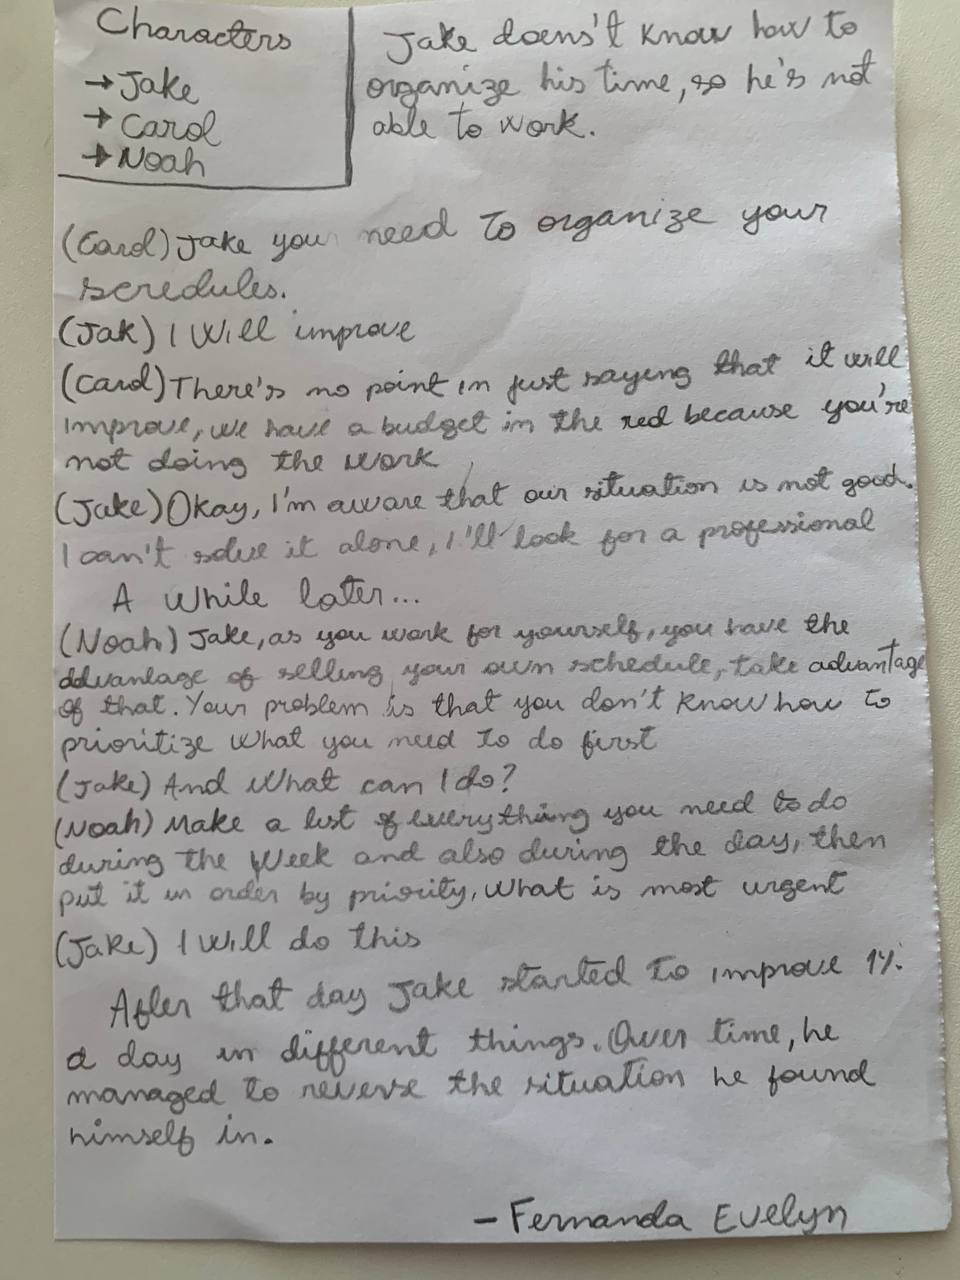 Characters
→ Jake
→ Carol
→ Noah
Jake doens't know how to
organize his time, so he's not
able to work.
(Carol) Jake you need to organize your
scredules.
(Jak) I will improve
(Carol) There's no point in just saying that it will
improve, we have a budget in the red because you're
not doing the work
(Jake) Okay, I'm aware that our situation is not good.
I can't solve it alone, I'll look for a professional
A while later...
(Noah) Jake, as you work for yourself, you have the
advantage of selling your own schedule, take advantage
of that. Your problem is that you don't know how to
prioritize what you need to do first
(Jake) And what can I do?
(Noah) Make a list of everything you need to do
during the week and also during the day, then
put it in order by priority, what is most urgent
(Jake) I will do this
After that day Jake started to improve 1%
a day in different things. Over time, he
managed to reverse the situation he found
himself in.
- Fernanda Evelyn